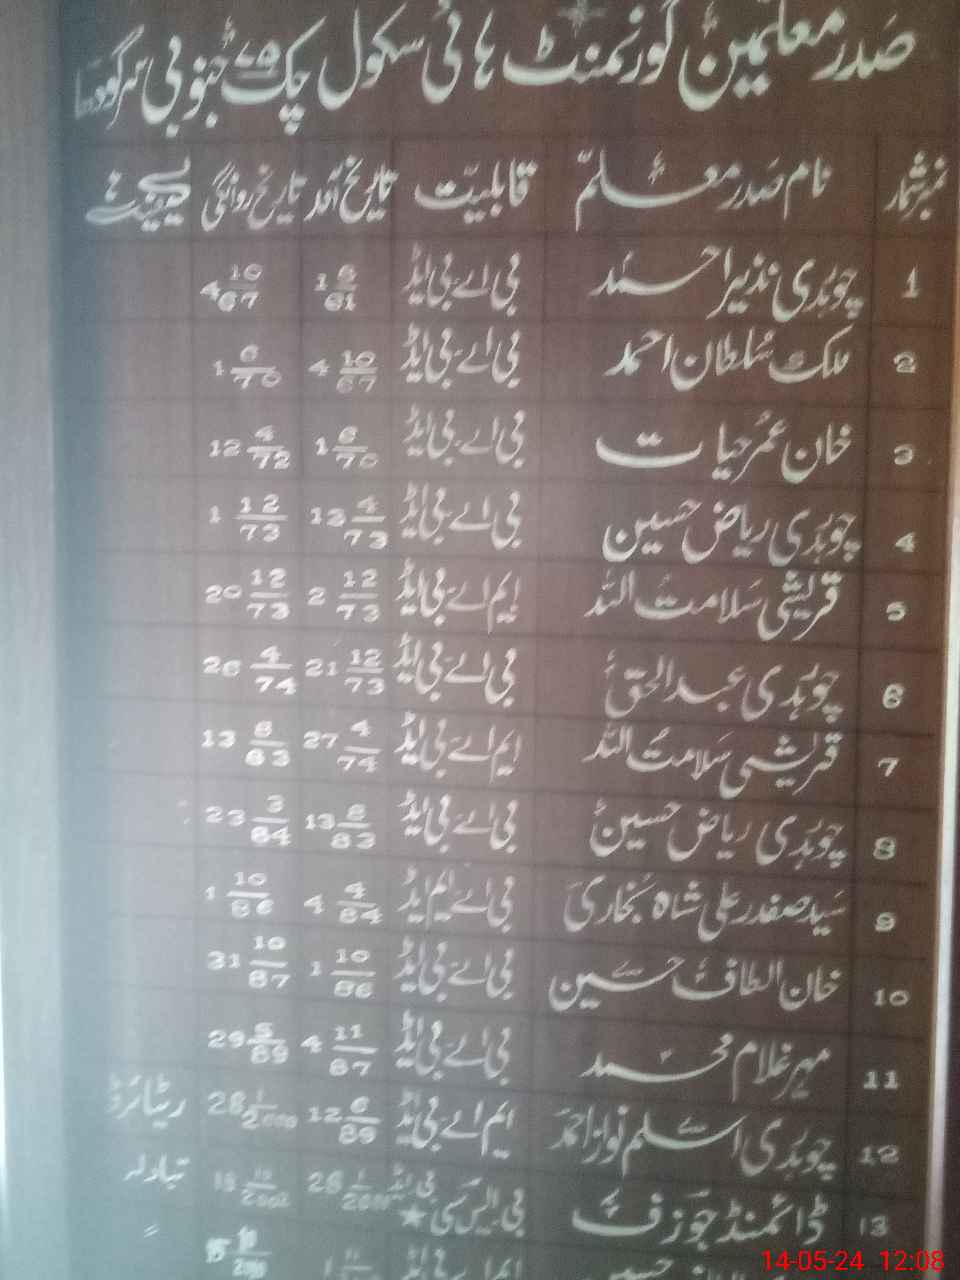 صدر معلمین گورنمنٹ ہائی سکول چک جنوبی سرگودھا
نمبر شمار نام صدر معلم قابلیت تاریخ آمد تاریخ روانگی کیفیت
1 چوہدری نذیر احمد بی اے بی ایڈ 1 6/61 4 10/67
2 ملک سلطان احمد بی اے بی ایڈ 4 10/67 1 6/70
3 خان عمر حیات بی اے بی ایڈ 1 6/70 12 4/72
4 چوہدری ریاض حسین بی اے بی ایڈ 13 4/73 1 12/73
5 قریشی سلامت اللہ ایم اے بی ایڈ 2 12/73 20 12/73
6 چوہدری عبدالحق بی اے بی ایڈ 21 12/73 26 4/74
7 قریشی سلامت اللہ ایم اے بی ایڈ 27 4/74 13 8/83
8 چوہدری ریاض حسین بی اے بی ایڈ 13 8/83 23 3/84
9 سید صفدر علی شاہ بخاری بی اے ایم ایڈ 4 4/84 1 10/86
10 خان الطاف حسین بی اے بی ایڈ 1 10/86 31 10/87
11 مہر غلام محمد بی اے بی ایڈ 4 11/87 29 5/89
12 چوہدری اسلم نواز احمد ایم اے بی ایڈ 12 6/89 28 1/2000 ریٹائرڈ
13 ڈائمنڈ جوزف بی ایس سی بی ایڈ ★ تبادلہ
14-05-24 12:08